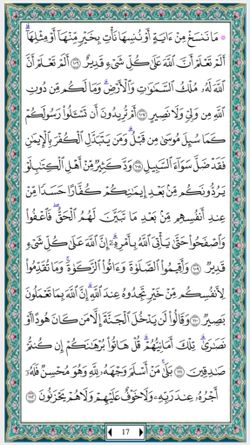 ۞ مَا نَنسَخْ مِنْ ءَايَةٍ أَوْ نُنسِهَا نَأْتِ بِخَيْرٍ مِّنْهَآ أَوْ مِثْلِهَآۗ
أَلَمْ تَعْلَمْ أَنَّ ٱللَّهَ عَلَىٰ كُلِّ شَىْءٍ قَدِيرٌ ١٠٦ أَلَمْ تَعْلَمْ أَنَّ
ٱللَّهَ لَهُۥ مُلْكُ ٱلسَّمَٰوَٰتِ وَٱلْأَرْضِۗ وَمَا لَكُم مِّن دُونِ
ٱللَّهِ مِن وَلِىٍّ وَلَا نَصِيرٍ ١٠٧ أَمْ تُرِيدُونَ أَن تَسْـَٔلُوا۟ رَسُولَكُمْ
كَمَا سُئِلَ مُوسَىٰ مِن قَبْلُۗ وَمَن يَتَبَدَّلِ ٱلْكُفْرَ بِٱلْإِيمَٰنِ
فَقَدْ ضَلَّ سَوَآءَ ٱلسَّبِيلِ ١٠٨ وَدَّ كَثِيرٌ مِّنْ أَهْلِ ٱلْكِتَٰبِ لَوْ
يَرُدُّونَكُم مِّنۢ بَعْدِ إِيمَٰنِكُمْ كُفَّارًا حَسَدًا مِّنْ
عِندِ أَنفُسِهِم مِّنۢ بَعْدِ مَا تَبَيَّنَ لَهُمُ ٱلْحَقُّۖ فَٱعْفُوا۟
وَٱصْفَحُوا۟ حَتَّىٰ يَأْتِىَ ٱللَّهُ بِأَمْرِهِۦٓۗ إِنَّ ٱللَّهَ عَلَىٰ كُلِّ شَىْءٍ
قَدِيرٌ ١٠٩ وَأَقِيمُوا۟ ٱلصَّلَوٰةَ وَءَاتُوا۟ ٱلزَّكَوٰةَۚ وَمَا تُقَدِّمُوا۟
لِأَنفُسِكُم مِّنْ خَيْرٍ تَجِدُوهُ عِندَ ٱللَّهِۗ إِنَّ ٱللَّهَ بِمَا تَعْمَلُونَ
بَصِيرٌ ١١٠ وَقَالُوا۟ لَن يَدْخُلَ ٱلْجَنَّةَ إِلَّا مَن كَانَ هُودًا أَوْ
نَصَٰرَىٰۗ تِلْكَ أَمَانِيُّهُمْۗ قُلْ هَاتُوا۟ بُرْهَٰنَكُمْ إِن كُنتُمْ
صَٰدِقِينَ ١١١ بَلَىٰ مَنْ أَسْلَمَ وَجْهَهُۥ لِلَّهِ وَهُوَ مُحْسِنٌ فَلَهُۥٓ
أَجْرُهُۥ عِندَ رَبِّهِۦ وَلَا خَوْفٌ عَلَيْهِمْ وَلَا هُمْ يَحْزَنُونَ ١١٢
17